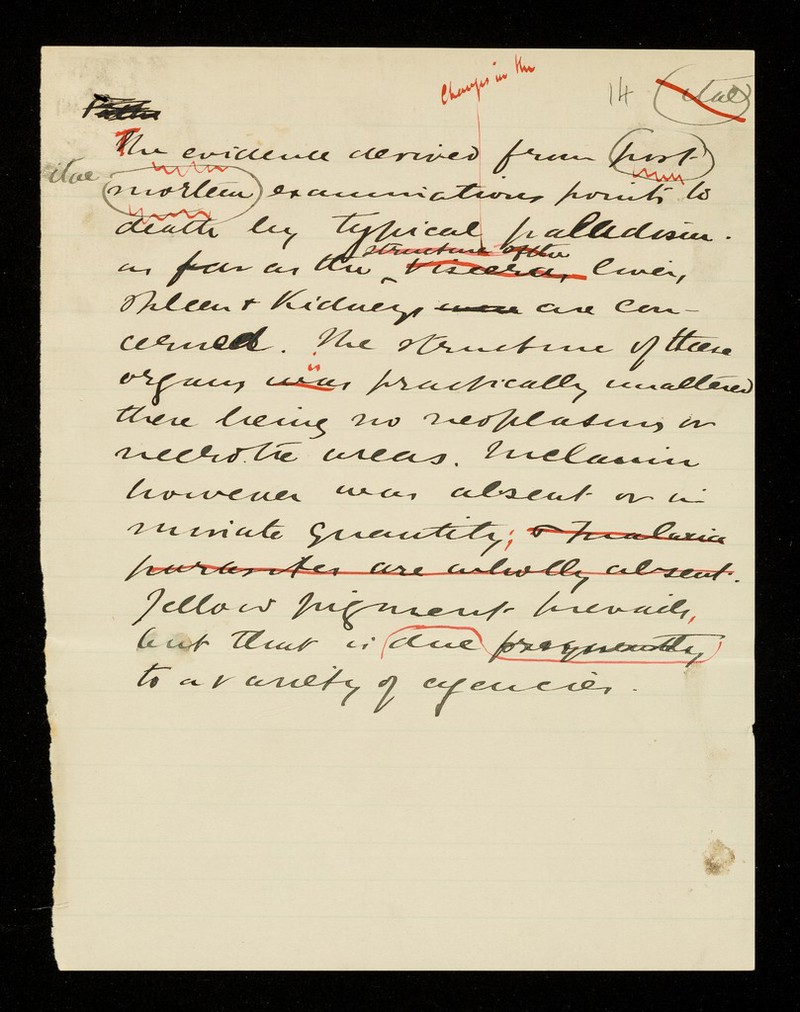 Changes in the
14 ital
Path
The evidence derived from post
ital mortem examinations points to
death by typical palludism.
structure of the
as far as the viscera, liver,
spleen & Kidneys were are con-
cerned. The structure of these
is
organs was practically unaltered
there being no neoplasms or
necrotic areas. Melanin
however was absent or in
minute quantity; & malaria
parasites are wholly absent.
Yellow pigment prevails,
but that is due frequently
to a variety of agencies.